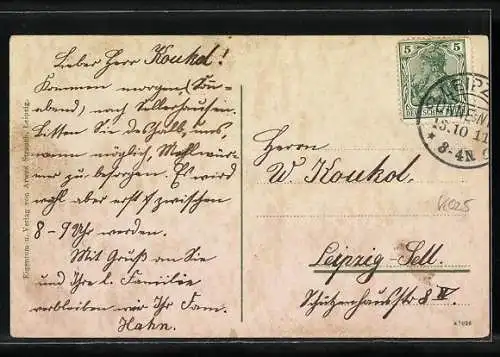 Lieber Herr Koukol!
Kommen morgen (Sonn-
abend) nach Sellerhausen.
Bitten Sie deshalb, uns
wenn möglich, Mehlwür-
mer zu besorgen. Es wird
wohl aber erst zwischen
8-9 Uhr werden.
Mit Gruß an Sie
und Ihre l. Familie
verbleiben wir Ihr Fam.
Hahn.
Eigentum u. Verlag von Leipzig.
5 5
DEUTSCHES REICH
LEIPZ
13.10.11
* 8-4N
Herrn
W. Koukol.
Leipzig Sell.
Schützenhausstr 8 IV.